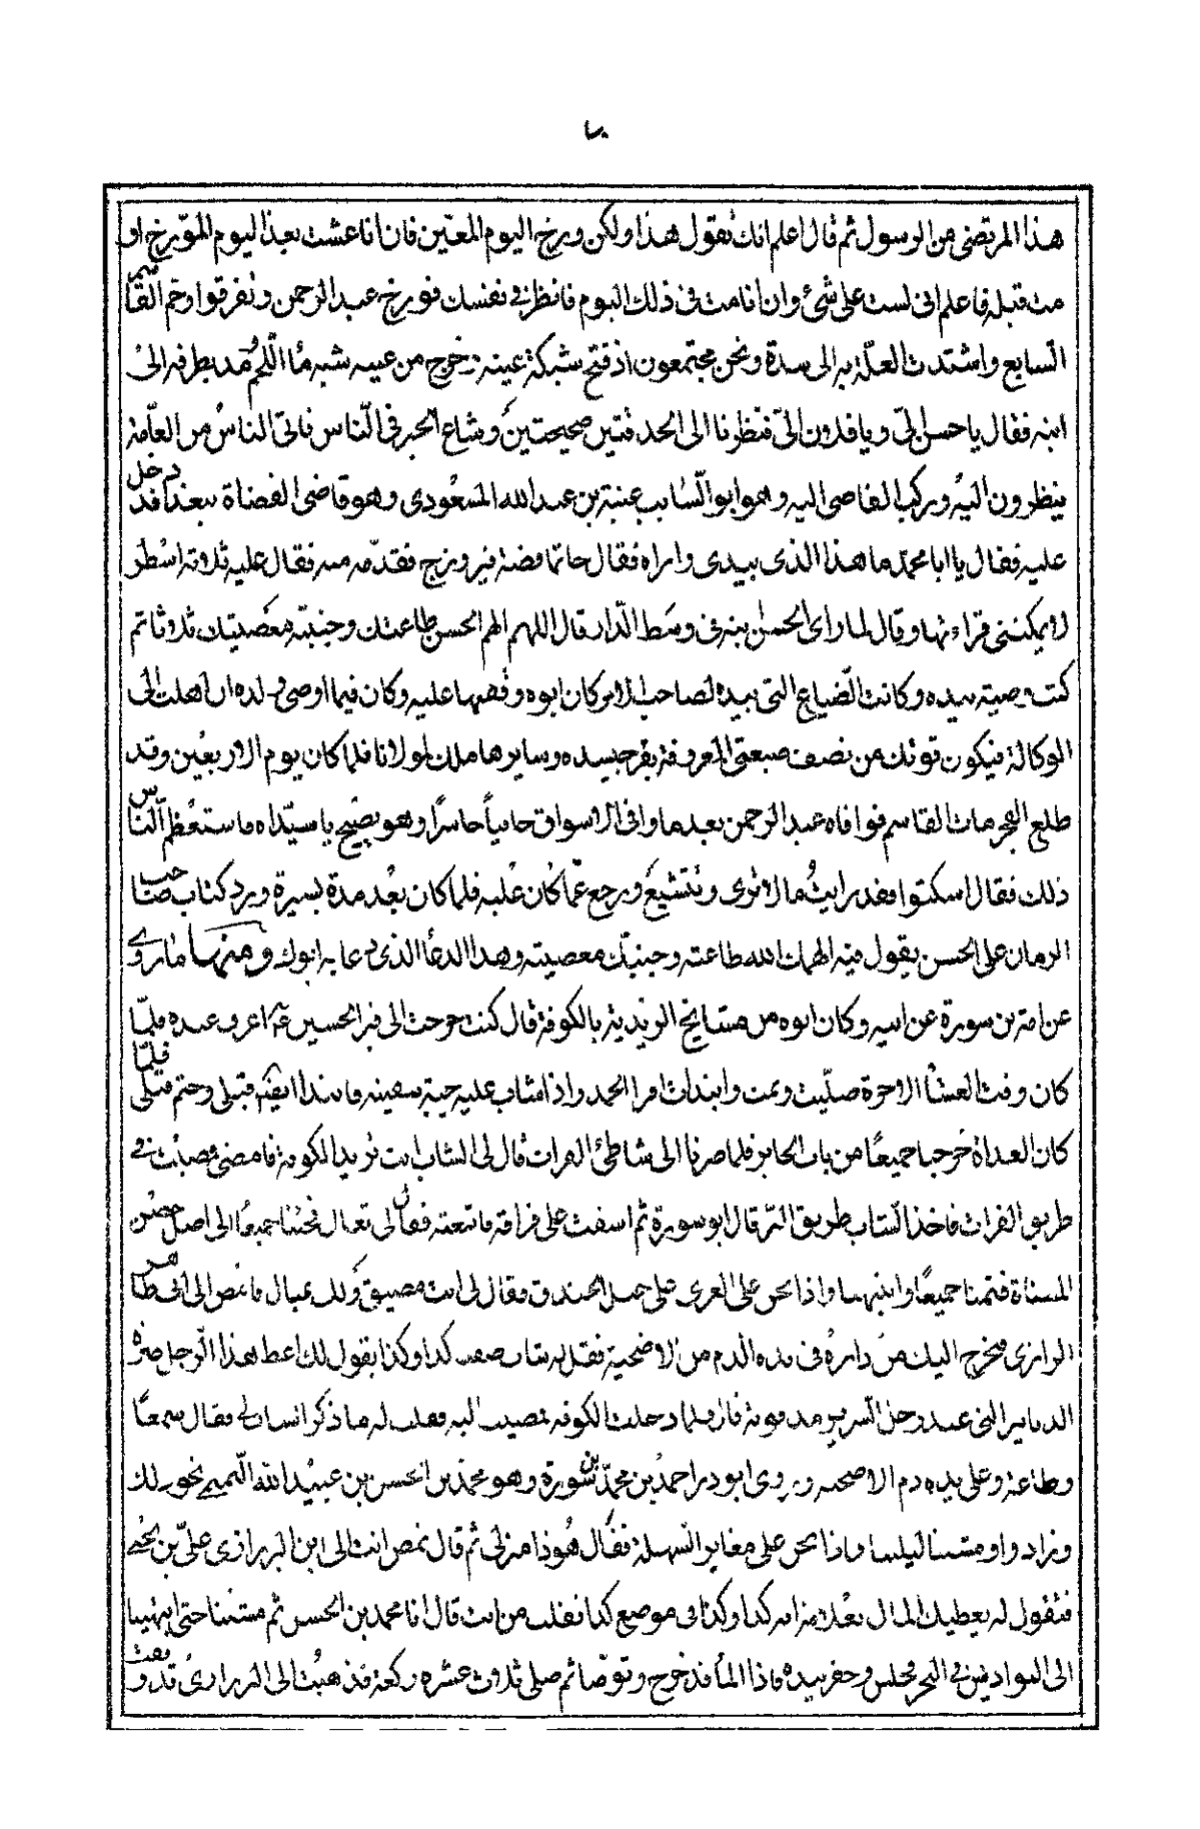 ٧٠
هذا المرتضى من الرسول ثم قال اعلم انك تقول هذا ولكن ورخ اليوم المعين فان انا عشت بعد اليوم المورخ او
مت قبله فاعلم انى لست على شئ وان انا مت فى ذلك اليوم فانظر فى نفسك فورخ عبد الرحمن وتفرقوا وحم القاسم
السابع واشتدت العلة به الى مدة ونحن مجتمعون اذ فتح عينه خرج من عينيه شبه ماء اللحم مد بطرفه الى
ابنه فقال يا حسن الى ويا فلان الى فنظرنا الى الحدقتين صحيحتين وشاع الخبر فى الناس فاتى الناس من العامة
ينظرون اليه وركب القاضى اليه وهو ابو السايب عتبة بن عبد الله المسعودى وهو قاضى القضاة ببغداد فدخل
عليه فقال يا ابا محمد ما هذا الذى بيدى واراه فقال خاتما فضة فيروزج فقدمه منه فقال عليه ثلاثة اسطر
لا يمكننى قراءتها وقال لما راى الحسن ابنه فى وسط الدار قال اللهم الهم الحسن طاعتك وجنبه معصيتك ثلاثا ثم
كتب وصيته بيده وكانت الضياع التى بيده لصاحب الامر كان ابوه وقفها عليه وكان فيما اوصى ولده ان اهلت الى
الوكالة فيكون قوتك من نصف ضيعتى المعروفة بفرجيده وسايرها ملك لمولانا فلما كان يوم الاربعين وقد
طلع الفجر مات القاسم فوافاه عبد الرحمن يعدو فى الاسواق حافيا حاسرا وهو يصيح يا سيداه فاستعظم الناس
ذلك فقال اسكتوا فقد رايت ما لا ترون وتشيع ورجع عما كان عليه فلما كان بعد مدة يسيرة ورد كتاب صاحب
الزمان على الحسن يقول فيه الهمك الله طاعته وجنبك معصيته وهذا الدعاء الذى دعا به ابوك ومنها ما روى
عن ابن سورة عن ابيه وكان ابوه من مشايخ الزيدية بالكوفة قال كنت خرجت الى قبر الحسين اعرف عنده فلما
كان وقت العشاء الاخرة صليت وقمت وابتدات اقرا الحمد واذا شاب عليه جبة فابتدا ايضا قبلى وختم قبلى فلما
كان الغداة خرجنا جميعا من باب الحاير فلما صرنا الى شاطئ الفرات قال لى الشاب انت تريد الكوفة فامض فمضيت فى
طريق الفرات فاخذ الشاب طريق البر قال ابو سورة ثم اسفت على فراقه فاتبعته فقال لى تعال فجئنا جميعا الى اصل حصن
المسناة فنمنا جميعا وانتبهنا واذا نحن على الغرى على جبل الخندق فقال لى انت مضيق ولك عيال فامض الى ابى طاهر
الزرارى فيخرج اليك من داره فى يده الدم من الاضحية فقل له شاب صفته كذا وكذا يقول لك اعط هذا الرجل صرة
الدنانير التى عند رجل السرير مدفونة قال فلما دخلت الكوفة مضيت اليه وقلت له ما ذكر انسان لى فقال سمعا
وطاعة وعلى يده دم الاضحية وروى ابو ذر احمد بن محمد بن سورة وهو محمد بن الحسن بن عبيد الله التميمى نحو ذلك
وزاد واو مشينا ليلتنا واذا نحن على مقابر السهلة فقال هوذا منزلى ثم قال تمضى انت الى ابن الزرارى على بن يحيى
فتقول له يعطيك المال بعلامة انه كذا وكذا فى موضع كذا فقلت من انت قال انا محمد بن الحسن ثم مشينا حتى انتهينا
الى النواويس فى السحر فجلس وحفر بيده فاذا الماء قد خرج وتوضا ثم صلى ثلاث عشرة ركعة فذهبت الى الزرارى فدققت